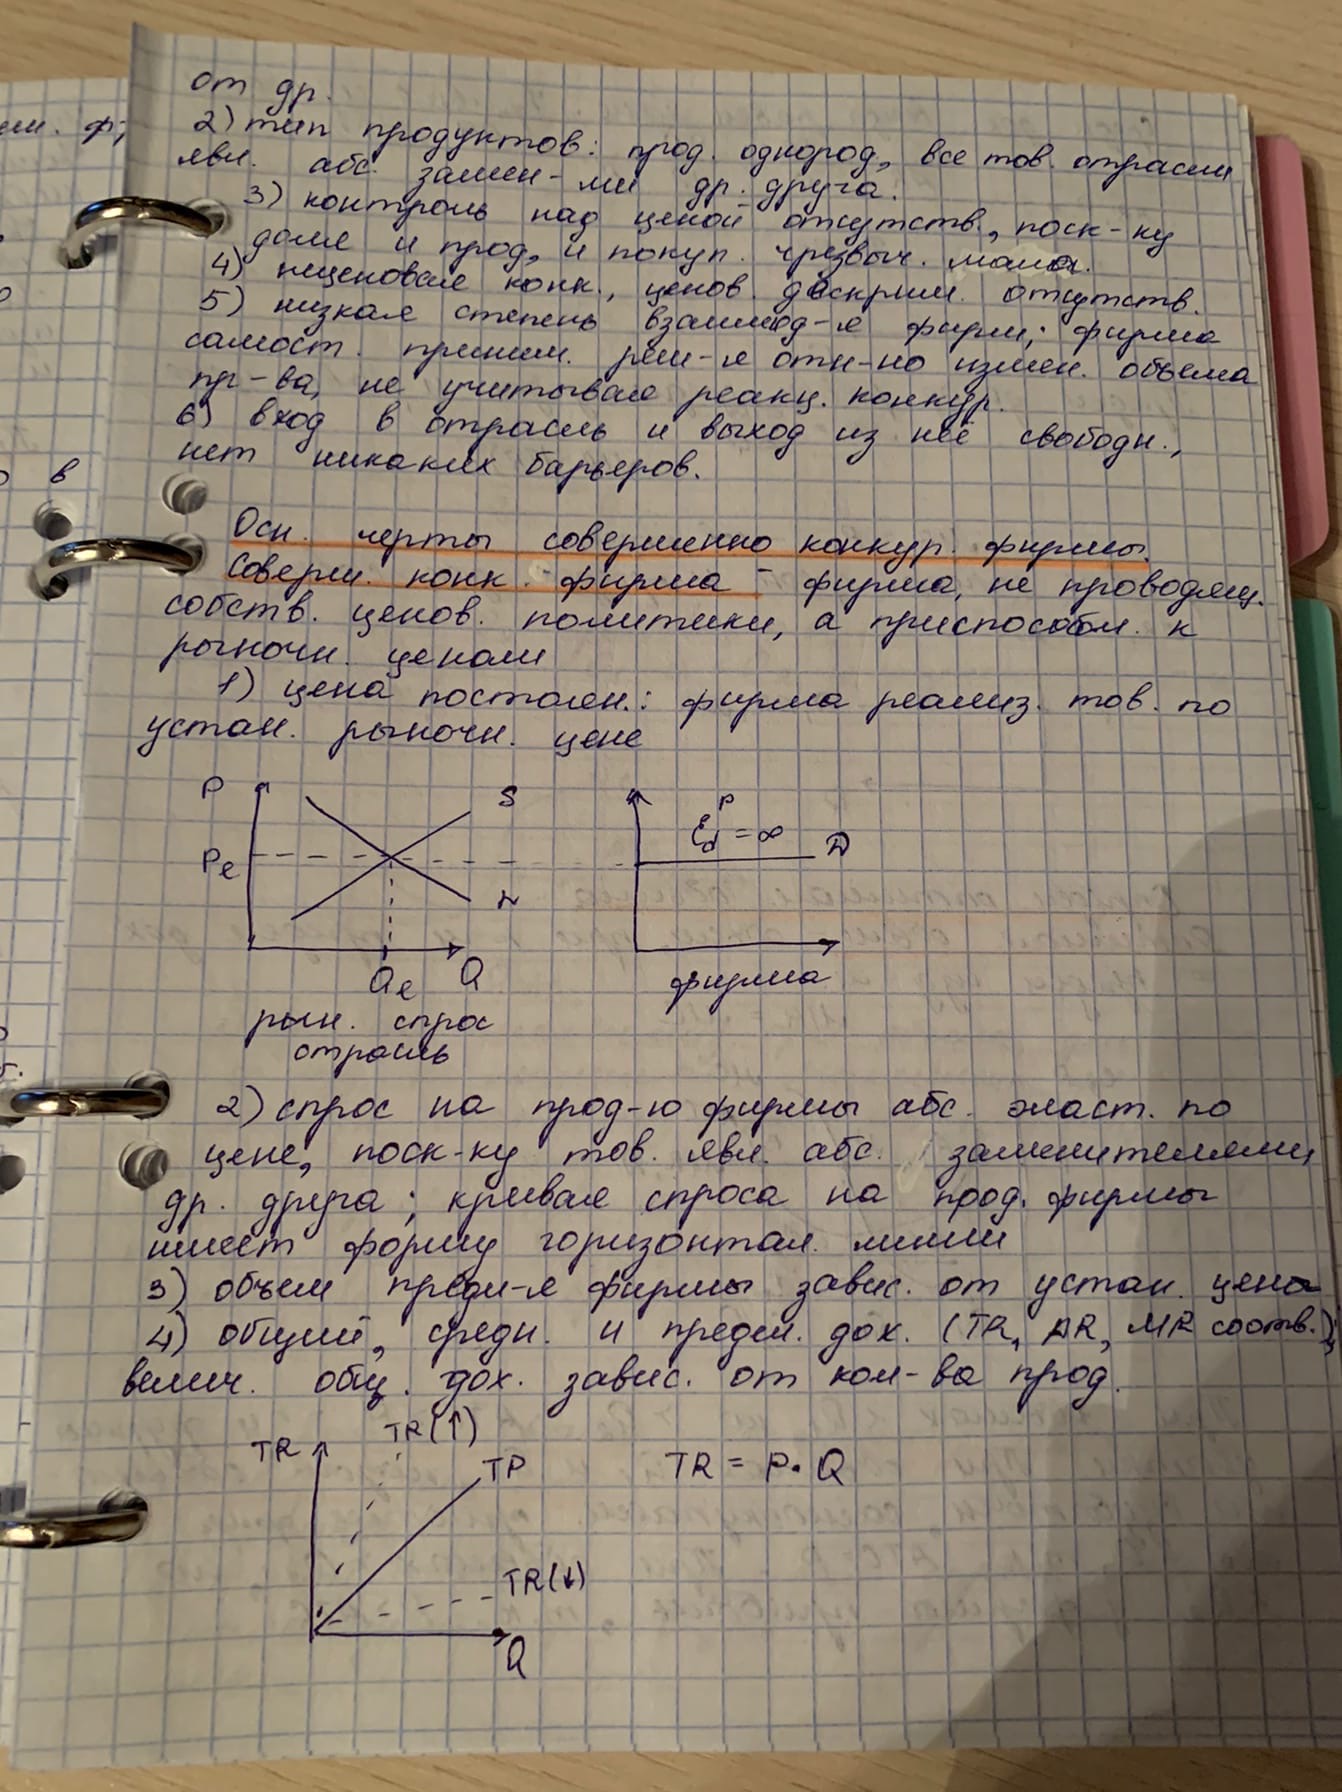 от др.
2) тип продуктов: прод. однород., все тов. отрасли
явл. абс. замен-ми др. друга.
3) контроль над ценой отсутств., поск-ку
доля и прод, и покуп. чрезвыч. мала.
4) неценовая конк., ценов. дискрим. отсутств.
5) низкая степень взаимод-я фирм; фирма
самост. приним. реш-я отн-но измен. объема
пр-ва, не учитывая реакц. конкур.
6) вход в отрасль и выход из неё свободн.,
нет никаких барьеров.
Осн. черты совершенно конкур. фирмы.
Соверш. конк. фирма - фирма, не проводящ.
собств. ценов. политики, а приспособл. к
рыночн. ценам
1) цена постоян.: фирма реализ. тов. по
устан. рыночн. цене
P S
Pe D
Qe Q
рын. спрос
отрасль
E d P = ∞ D
фирма
2) спрос на прод-ю фирмы абс. эласт. по
цене, поск-ку тов. явл. абс. заменителями
др. друга; кривая спроса на прод. фирмы
имеет форму горизонтал. линии
3) объем предл-я фирмы завис. от устан. цены
4) общий, средн. и предел. дох. (TR, AR, MR соотв.);
велич. общ. дох. завис. от кол-ва прод.
TR TR(↑)
TP TR = P • Q
TR(↓)
Q
в